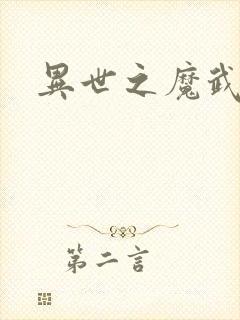 異世之魔武
第二言